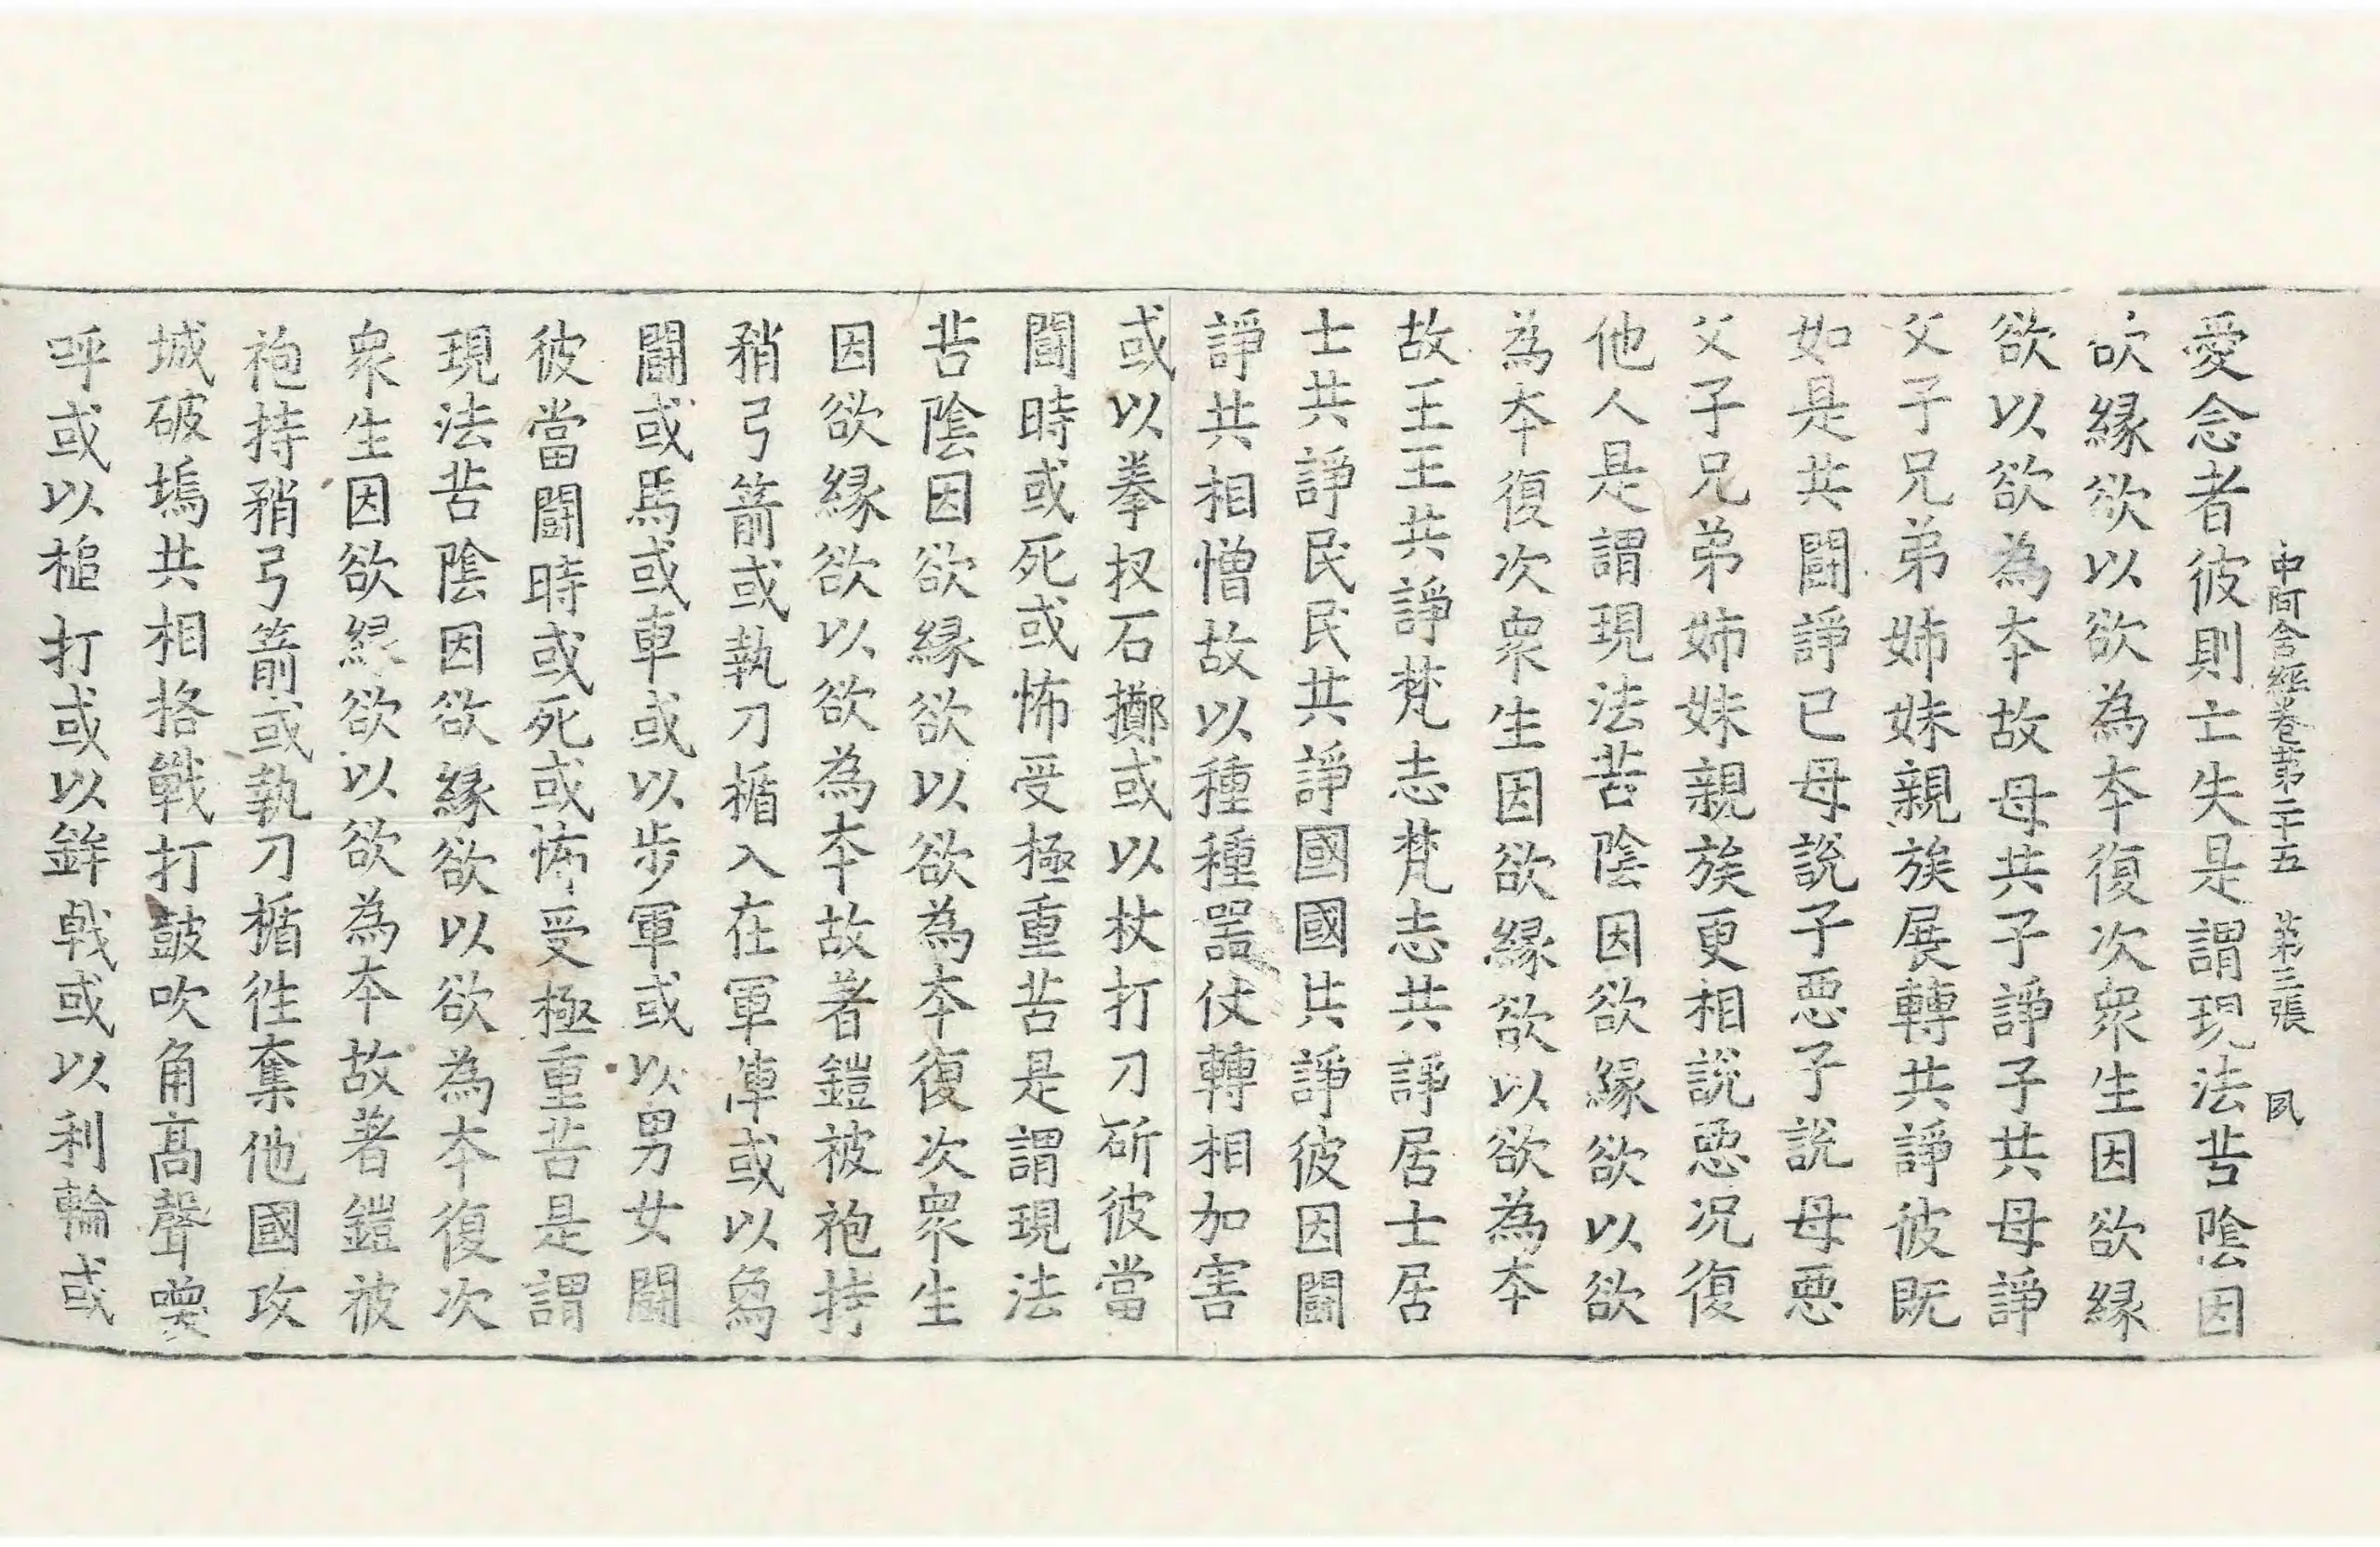 中阿含經卷第二十五　第三張　夙
愛念者彼則亡失是謂現法苦陰因
欲緣欲以欲為本復次衆生因欲緣
欲以欲為本故母共子諍子共母諍
父子兄弟姉妹親族展轉共諍彼既
如是共鬪諍已母說子惡子說母惡
父子兄弟姉妹親族更相說惡況復
他人是謂現法苦陰因欲緣欲以欲
為本復次衆生因欲緣欲以欲為本
故王王共諍梵志梵志共諍居士居
士共諍民民共諍國國共諍彼因鬪
諍共相憎故以種種器仗轉相加害
或以拳扠石擲或以杖打刀斫彼當
鬪時或死或怖受極重苦是謂現法
苦陰因欲緣欲以欲為本復次衆生
因欲緣欲以欲為本故著鎧被袍持
矟弓箭或執刀楯入在軍陣或以為
鬪或馬或車或以步軍或以男女鬪
彼當鬪時或死或怖受極重苦是謂
現法苦陰因欲緣欲以欲為本復次
衆生因欲緣欲以欲為本故著鎧被
袍持矟弓箭或執刀楯徃奪他國攻
城破塢共相挌戰打鼓吹角高聲喚
呼或以槌打或以鉾戟或以利輪或